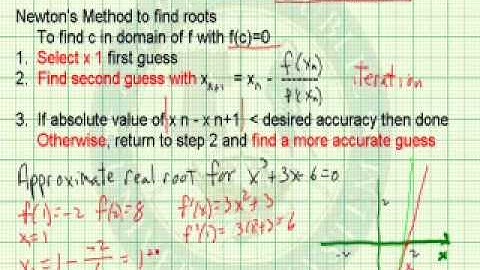 Newton's Method to find roots
To find c in domain of f with f(c)=0
1. Select x 1 first guess
2. Find second guess with x_{n+1} = x_n - f(x_n) / f'(x_n) iteration
3. If absolute value of |x n - x n+1| < desired accuracy then done
Otherwise, return to step 2 and find a more accurate guess
Approximate real root for x^3+3x-6=0
f(1)=-2 f(2)=8 f'(x)=3x^2+3
x_1=1 f'(1)=3(1^2)+3=6
-2 2 x
2